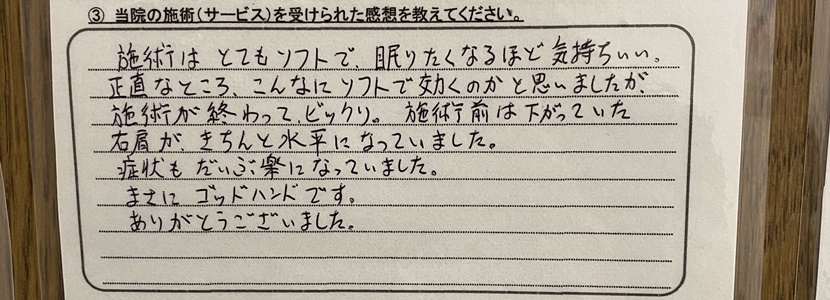 ③ 当院の施術（サービス）を受けられた感想を教えてください。
施術は とてもソフトで、眠りたくなるほど 気持ちいい。
正直なところ、こんなに ソフトで効くのか と思いましたが、
施術が 終わって、ビックリ。 施術前は下がっていた
右肩が、きちんと水平になっていました。
症状も だいぶ楽になっていました。
まさに ゴッドハンドです。
ありがとうございました。